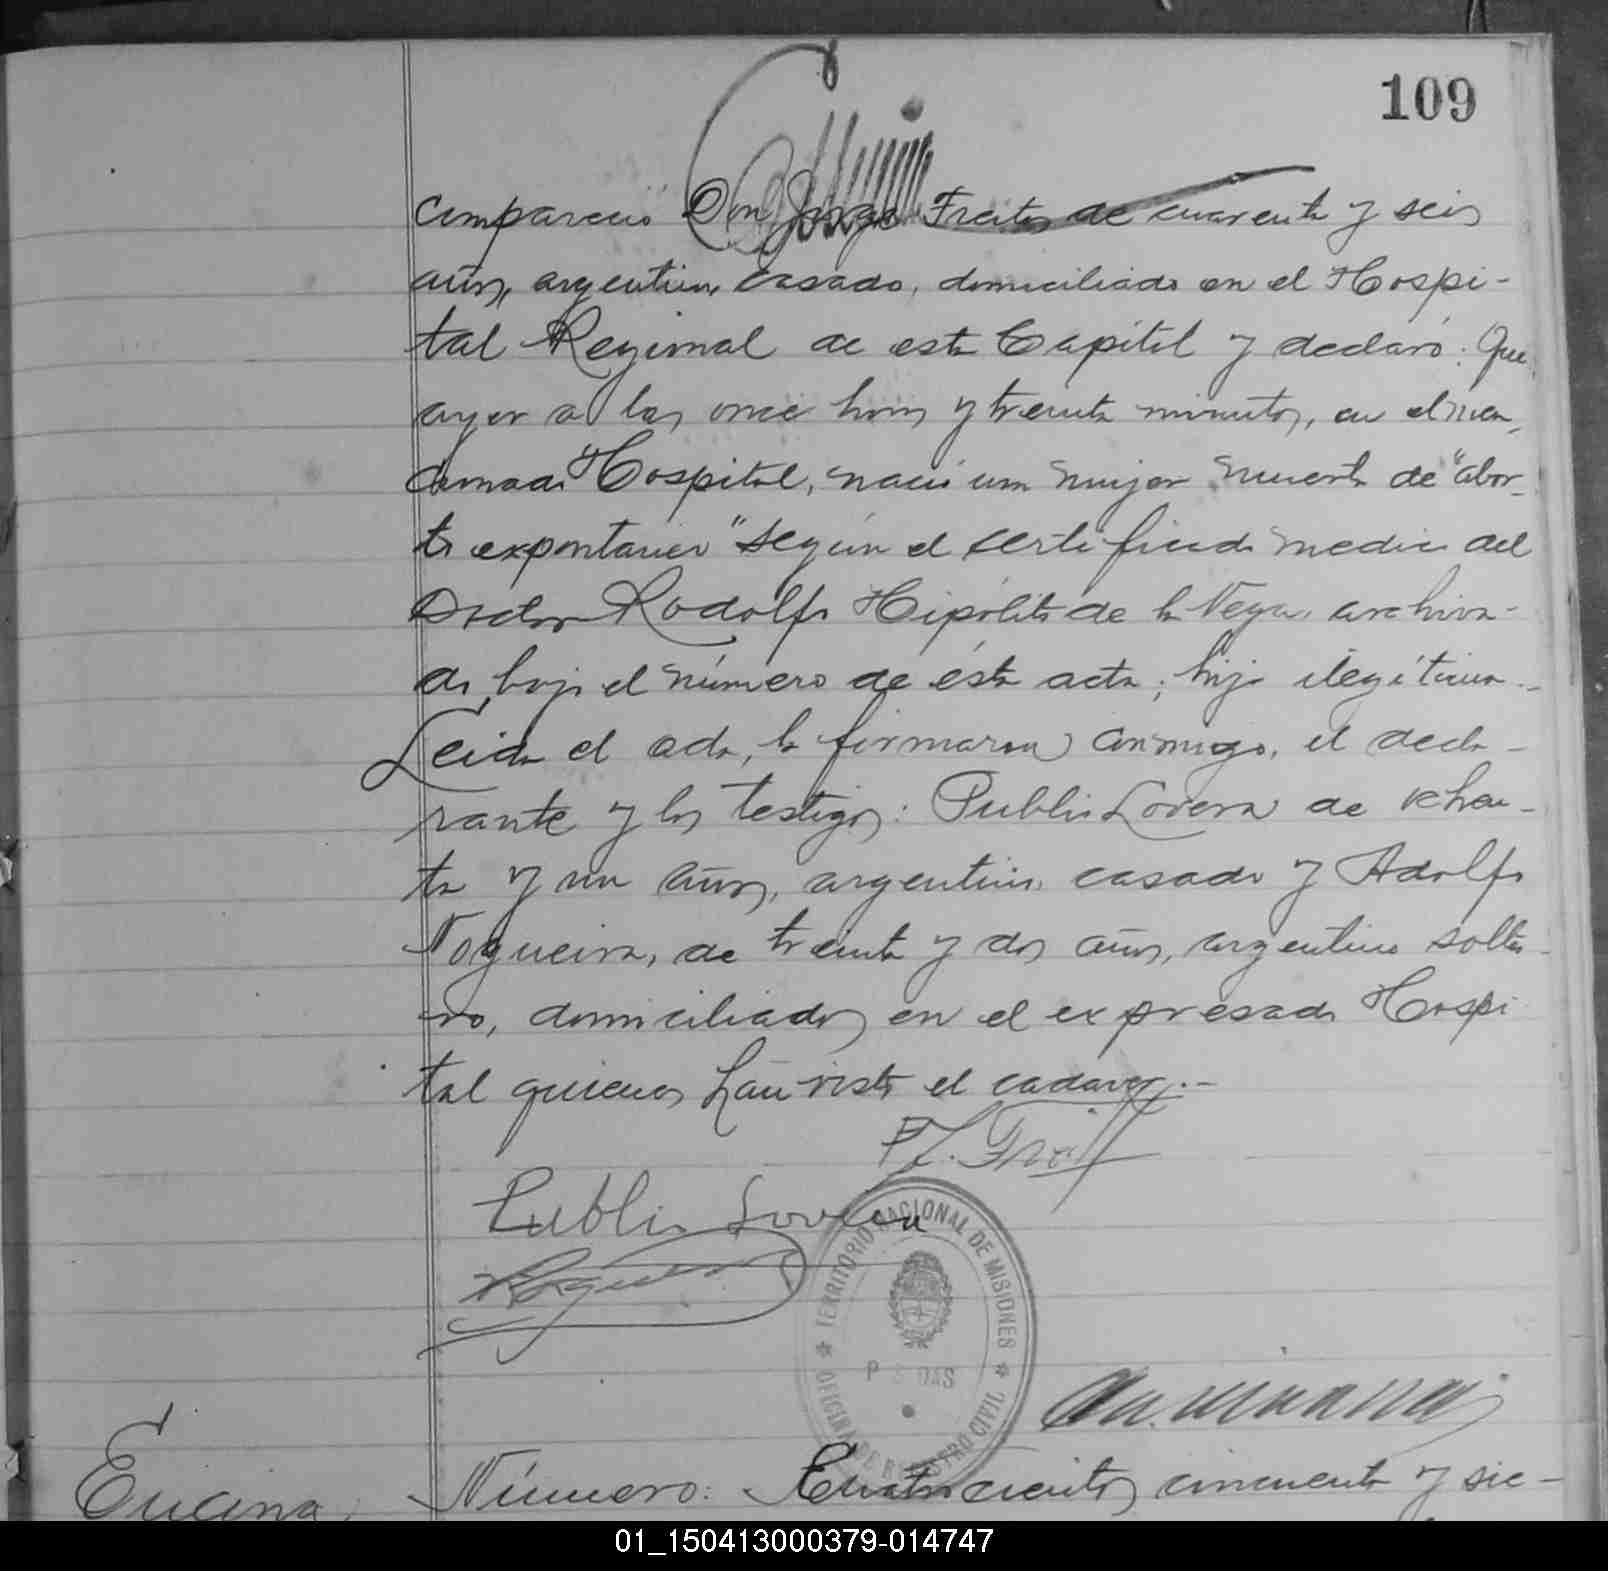 109
compareció Don Jorge Freitas de cuarenta y seis
años, argentino, casado, domiciliado en el Hospi-
tal Regional de esta Capital y declaró: Que
ayer a las once horas y treinta minutos, en el men-
cionado Hospital, nació una mujer muerta de "abor-
to expontaneo" según el certificado medico del
Doctor Rodolfo Hipólito de la Vega, archiva-
do bajo el número de ésta acta; hija ilegítima.-
Leida el acta, la firmaron conmigo, el decla-
rante y los testigos: Publio Lovera de
y un años, argentino, casado y Adolfo
Nogueira, de treinta y dos años, argentino solte-
ro, domiciliados en el expresado Hospi-
tal quienes han visto el cadaver.-
Publio Lovera
TERRITORIO NACIONAL DE MISIONES
OFICINA DE REGISTRO CIVIL
Encina, Número: Cuatrocientos cincuenta y sie-
01_150413000379-014747